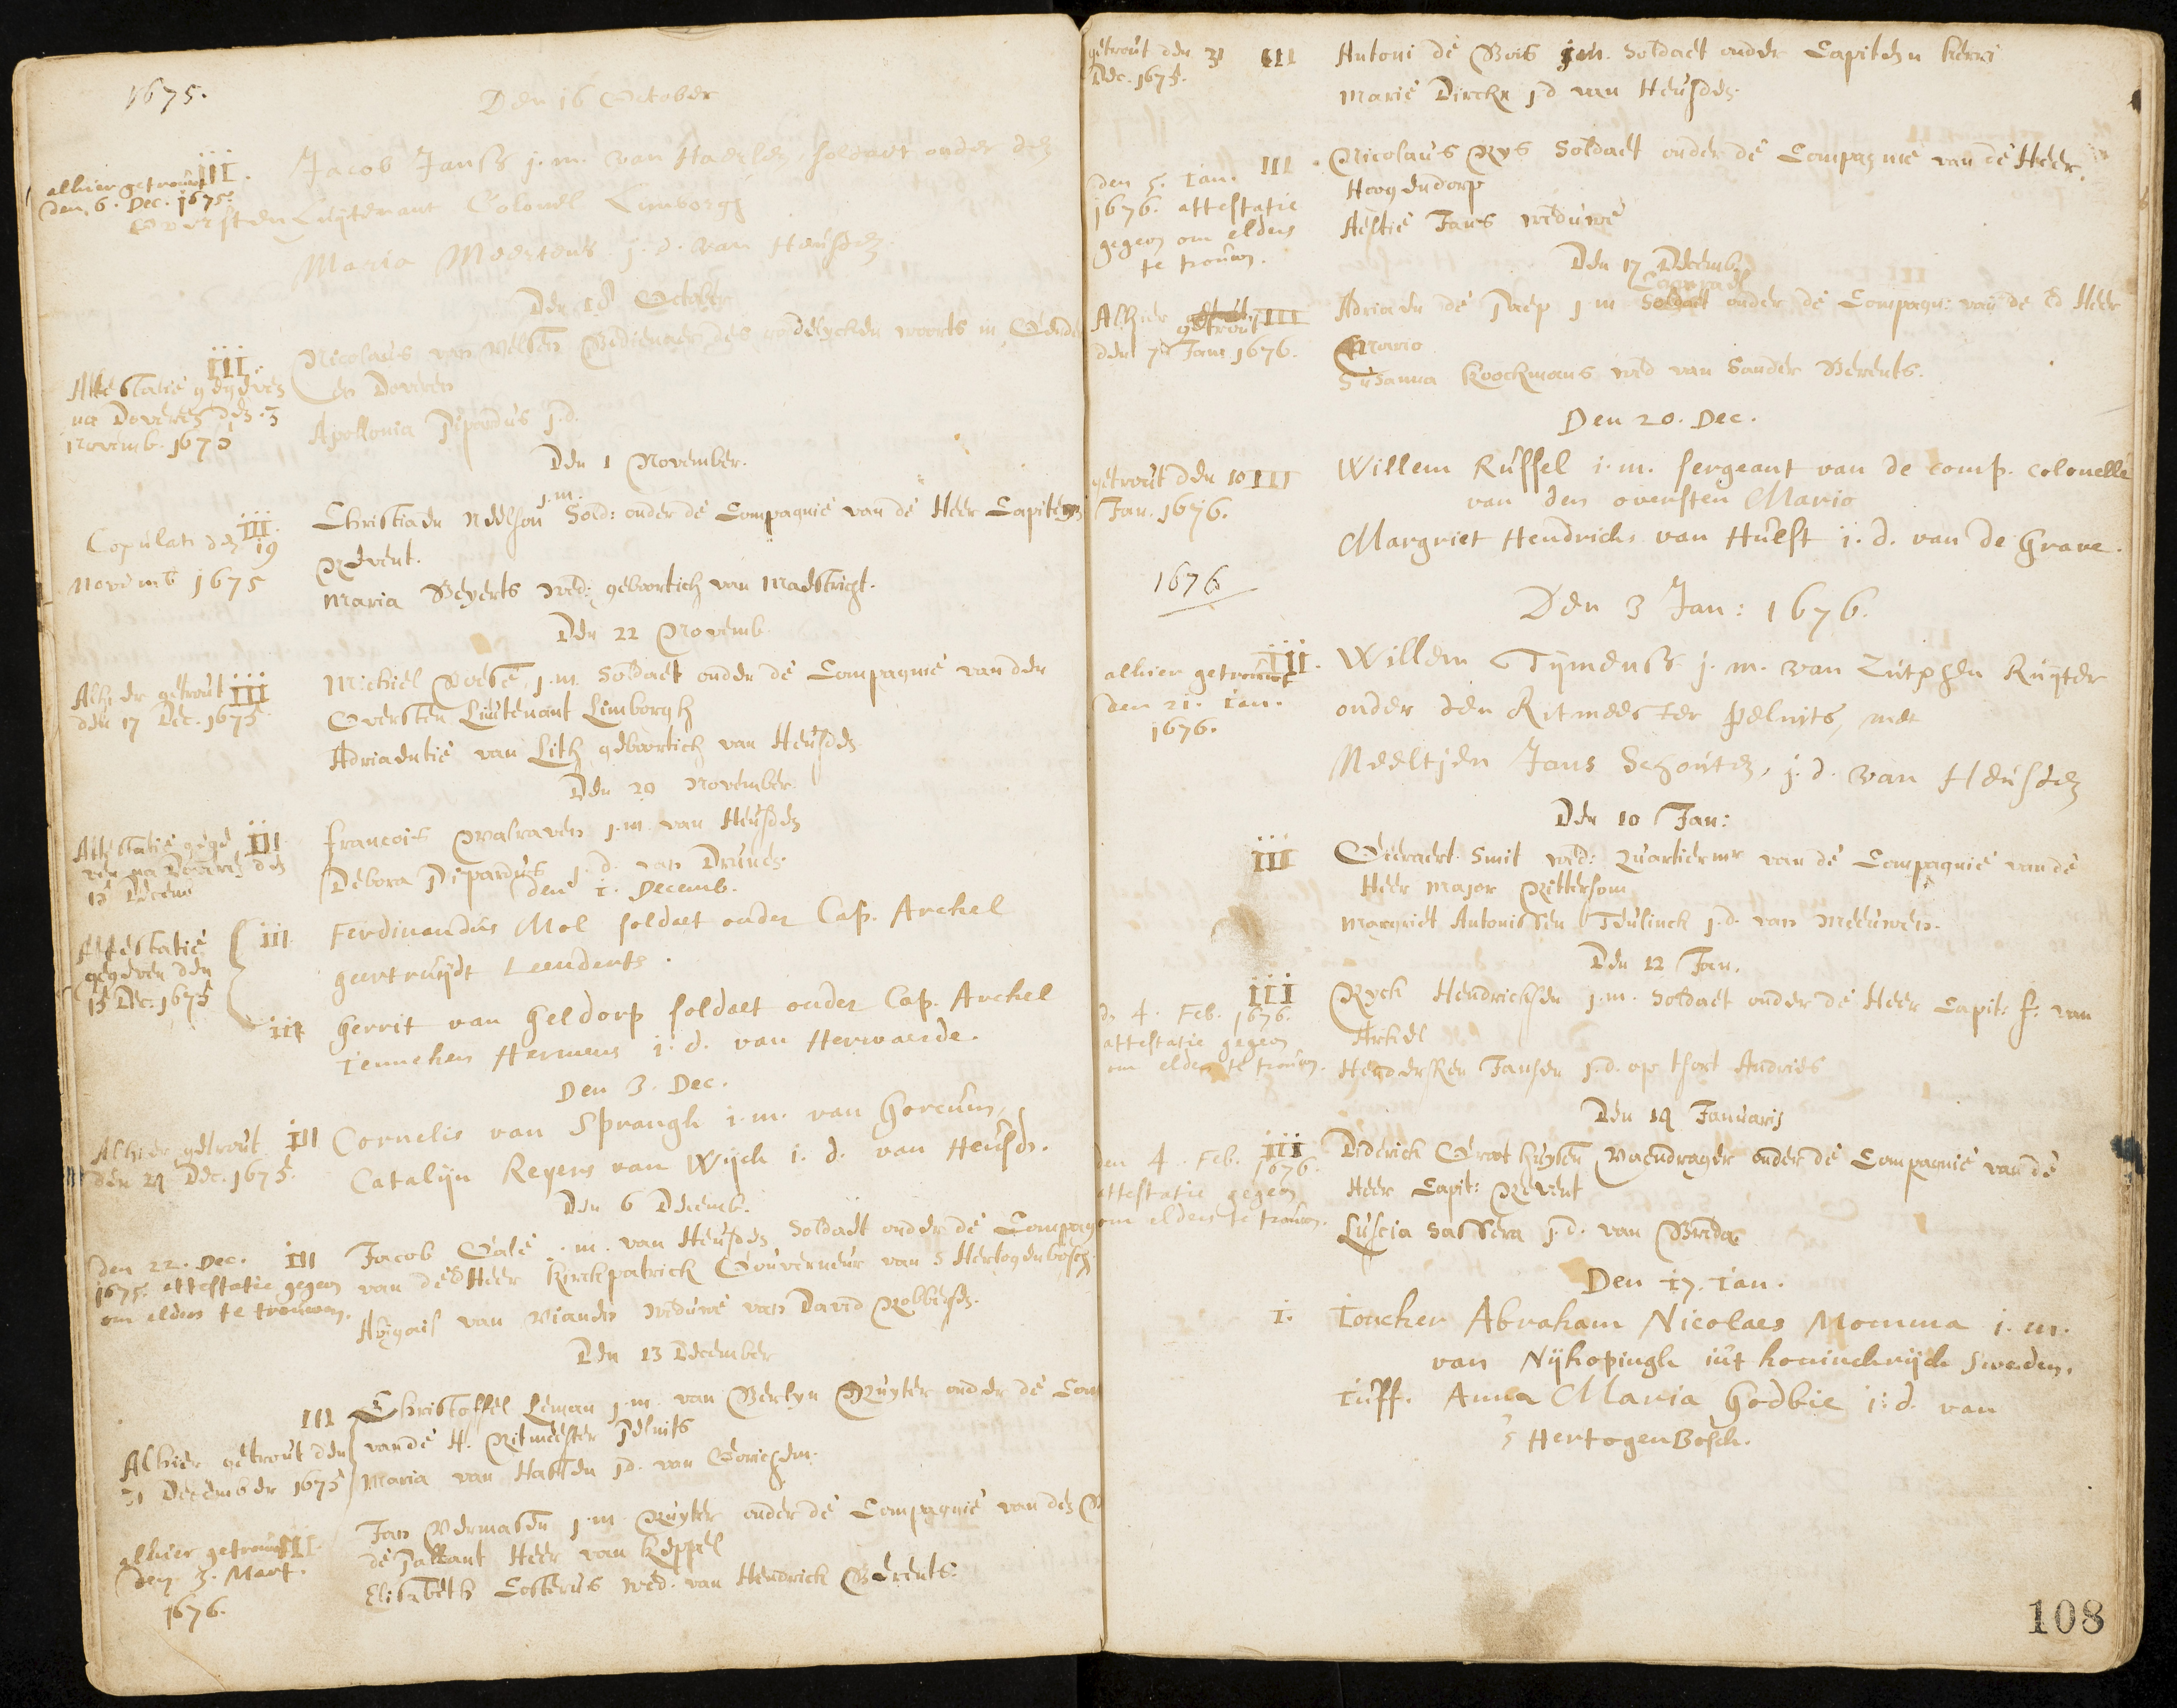 1675.
Den 16 October
alhier getrouwt III.
den 6. Dec. 1675.
Jacob Janss j.m. van Haerlen, soldaet onder den
Oversten Luijtenant Colonel Limborgh
Maria Meertens j.d. van Heusden
Den 18 October
III.
Attestatie gegeven
na Doveren den 3
Novemb. 1675
Nicolaus van Velsen Bedienaer des godelycken woorts in
en Doveren
Apollonia Pipardus j.d.
Den 1 November.
III.
Copulati den 19
Novemb 1675
Christiaen Neelson j.m. Sold: onder de Compagnie van de Heer Capiteyn
Revent.
Maria Beyerts wed: geboortich van Maestricht.
Den 22 Novemb.
Alhier getrout III
den 17 Dec. 1675
Michiel j.m. Soldaet onder de Compagnie van den
Oversten Liutenant Limborgh
Adriaentie van Lith geboortich van Heusden
Den 29 November
Attestatie gege III
ven na Doveren den
15 Decem
Francois Walraven j.m. van Heusden
Debora Pipardus j.d. van Drunen.
den 1. Decemb.
Attestatie
gegeven den
15 Dec: 1675
III Ferdinandus Mol soldaet onder Cap. Arckel
geertruijdt Leenderts.
III Gerrit van Geldorp soldaet onder Cap. Arckel
Jenneken Hermens i.d. van Herwaerde.
Den 3. Dec.
Alhier getrout III
den 21 Dec. 1675.
Cornelis van Sprangh i.m. van Gorcum,
Catalijn Reyers van Wijck i.d. van Heusdn.
Den 6 Decemb.
den 22. Dec. III
1675. attestatie gegeven
om elders te trouwen.
Jacob Gale j.m. van Heusden Soldaet onder de Compag
van de Heer Kirckpatrick Gouverneur van s Hertogenbosch.
Abigail van Vianden weduwe van David Robbersen.
Den 13 December
III
Alhier getrout den
31 December 1675
Christoffel Leman j.m. van Berlyn Ruyter onder de Com
van de H. Ritmeester Pelnits
Maria van Hassen j.d. van Gorichem.
alhier getrouwt III
den 3. Mart.
1676.
Jan Vermasen j.m. Ruyter onder de Compagnie van den
de Pallant Heer van Keppel
Elisabeth Costerus wed. van Hendrick Berents.
getrout den 31 III
Dec. 1675.
Antoni de Bois j.m. Soldaet onder Capiteyn Kerri
Marie Dirckx j.d van Heusden
den 5. Jan. III
1676. attestatie
gegeven om elders
te trouwen.
Nicolaus Rys Soldaet onder de Compagnie van de Heer
Hoogendorp
Aeltie Jans weduwe
Den 17 Decemb.
Alhier getrout III
den 7 Jan 1676.
Adriaen de Paep j m Corporael onder de Compagn: van de Ed Heer
Mario
Susanna Koockmans wed van Sander Berents.
Den 20. Dec.
getrout den 10 III
Jan. 1676.
Willem Russel i.m. sergeant van de comp. colonelle
van den oversten Mario
Margriet Hendricks van Hulst i.d. van de Grave.
1676
Den 3 Jan: 1676.
alhier getrouwt III.
den 21. Jan.
1676.
Willem Tijmenss j.m. van Zutphen Ruijter
onder den Ritmeester Pelnits, met
Neeltjen Jans Schouten, j.d. van Heusden
Den 10 Jan:
III
Geeraert Smit wed: Quartiermr van de Compagnie van de
Heer Major Rittersom
Margriet Antonissen Teulinck j.d. van Meeuwen.
Den 12 Jan.
III
dn 4. Feb. 1676.
attestatie gegeven
om elders te trouwen.
Ryck Hendricksen j.m. Soldaet onder de Heer Capit: f. van
Arkel
Henderсken Jansen j.d. op tfort Andries
Den 14 Januarij
den 4. Feb. III
1676.
attestatie gegeven
om elders te trouwen.
Diderick Groothuysen Vaendrager onder de Compagnie van de
Heer Capit: Revent
Luscia Sassera j.d. van Breda.
Den 17. Jan.
I. Joncker Abraham Nicolaes Momma i.m.
van Nijkopingh iut koninckrijck Sweden.
Juff. Anna Maria Godbie i:d. van
s HertogenBosch.
108